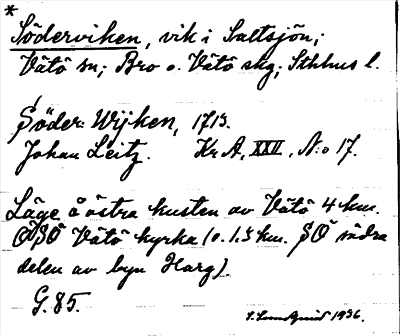 *
Söderviken, vik i Saltsjön;
Vätö sn; Bro o. Vätö skg; Sthlms l.
Söder Wijken, 1713.
Johan Leitz. Kr A, XXII, N:o 17.
Läge å östra kusten av Vätö 4 km.
OSO Vätö kyrka (o. 1.5 km. SO södra
delen av byn Harg).
G. 85.
S. Lundquist 1936.